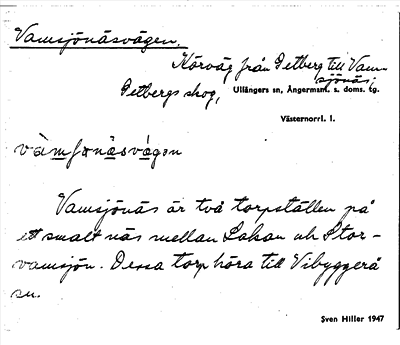 Vamsjönäsvägen.
Körväg från Getberg till Vam-
sjönäs;
Getbergs skog, Ullångers sn, Ångermanl. s. doms. tg.
Västernorrl. l.
Vamsjönäs är två torpställen på
ett smalt näs mellan Sakan och Stor-
vamsjön. Dessa torp höra till Vibyggerå
sn.
Sven Hiller 1947